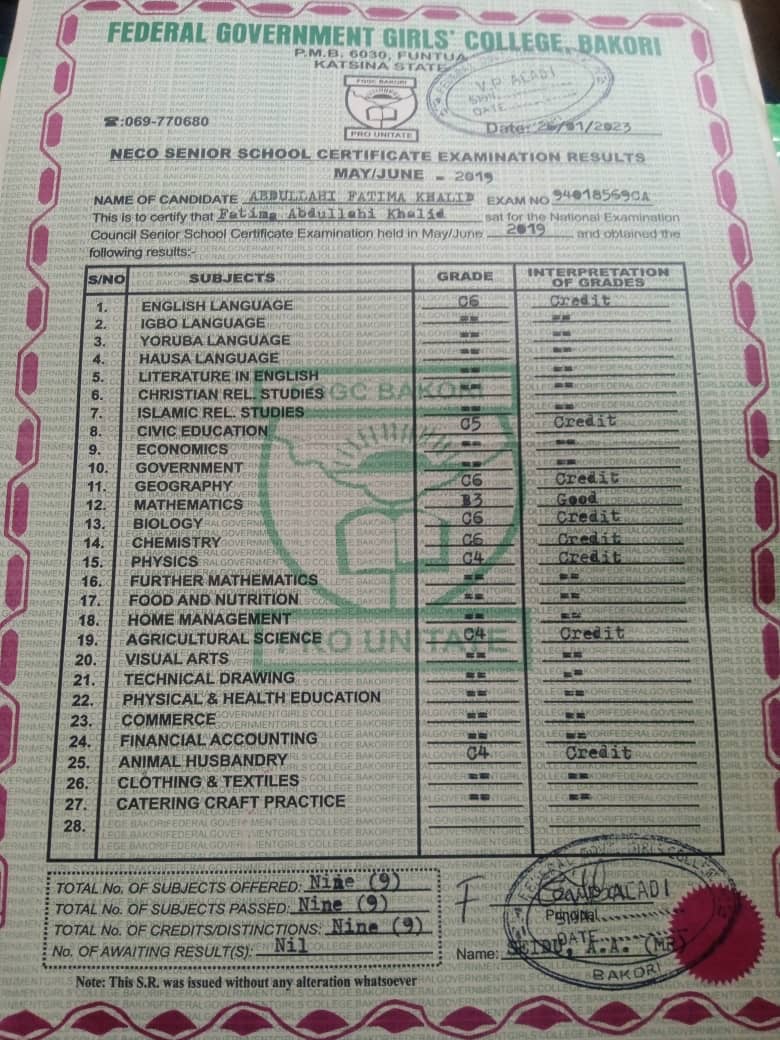 FEDERAL GOVERNMENT GIRLS' COLLEGE, BAKORI
P.M.B. 6030, FUNTUA
KATSINA STATE
FGGC BAKORI
PRO UNITATE
V.P. ALADI
SIGN
DATE
☎:069-770680
Date: /01/2023
NECO SENIOR SCHOOL CERTIFICATE EXAMINATION RESULTS
MAY/JUNE - 2019
NAME OF CANDIDATE ABDULLAHI FATIMA KHALID EXAM NO 94018569CA
This is to certify that Fatima Abdullahi Khalid sat for the National Examination
Council Senior School Certificate Examination held in May/June 2019 and obtained the
following results:-
S/NO SUBJECTS GRADE INTERPRETATION OF GRADES
1. ENGLISH LANGUAGE C6 Credit
2. IGBO LANGUAGE == ==
3. YORUBA LANGUAGE == ==
4. HAUSA LANGUAGE == ==
5. LITERATURE IN ENGLISH == ==
6. CHRISTIAN REL. STUDIES == ==
7. ISLAMIC REL. STUDIES == ==
8. CIVIC EDUCATION C5 Credit
9. ECONOMICS == ==
10. GOVERNMENT == ==
11. GEOGRAPHY C6 Credit
12. MATHEMATICS B3 Good
13. BIOLOGY C6 Credit
14. CHEMISTRY C6 Credit
15. PHYSICS C4 Credit
16. FURTHER MATHEMATICS == ==
17. FOOD AND NUTRITION == ==
18. HOME MANAGEMENT == ==
19. AGRICULTURAL SCIENCE C4 Credit
20. VISUAL ARTS == ==
21. TECHNICAL DRAWING == ==
22. PHYSICAL & HEALTH EDUCATION == ==
23. COMMERCE == ==
24. FINANCIAL ACCOUNTING == ==
25. ANIMAL HUSBANDRY C4 Credit
26. CLOTHING & TEXTILES == ==
27. CATERING CRAFT PRACTICE == ==
28.
FGGC BAKORI
PRO UNITATE
TOTAL No. OF SUBJECTS OFFERED: Nine (9)
TOTAL No. OF SUBJECTS PASSED: Nine (9)
TOTAL No. OF CREDITS/DISTINCTIONS: Nine (9)
No. OF AWAITING RESULT(S): Nil
ALADI
Principal
DATE
Name: SEIDU, A.A. (MR)
BAKORI
Note: This S.R. was issued without any alteration whatsoever